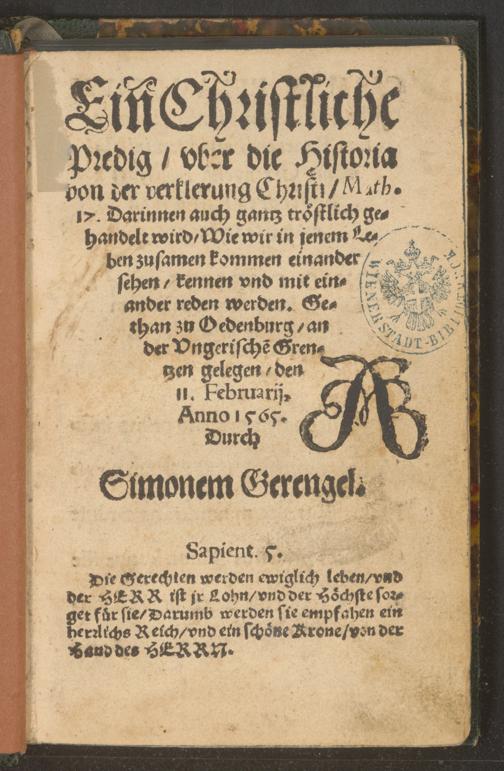 Ein Christliche
Predig / vber die Historia
von der verklerung Christi / Math.
17. Darinnen auch gantz tröstlich ge⸗
handelt wird / Wie wir in jenem Le⸗
ben zusamen kommen einander
sehen / kennen vnd mit ein⸗
ander reden werden. Ge⸗
than zu Oedenburg / an
der Vngerischẽ Gren⸗
tzen gelegen / den
11. Februarij,
Anno 1565.
Durch
Simonem Gerengel.
WIENER STADT-BIBLIOTHEK
Sapient. 5.
Die Gerechten werden ewiglich leben / vnd
der HERR ist jr Lohn / vnd der Höchste sor⸗
get für sie / Darumb werden sie empfahen ein
herrlichs Reich / vnd ein schöne Krone / von der
Hand des HERRN.